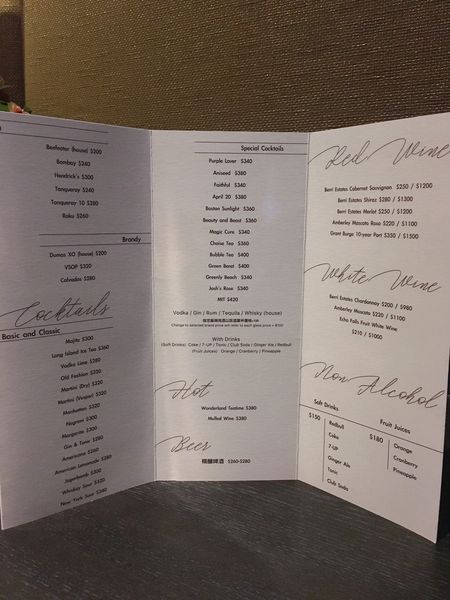 Beefeater (house) $200
Bombay $240
Hendrick's $300
Tanqueray $240
Tanqueray 10 $280
Roku $260
Brandy
Dumas XO (house) $200
VSOP $320
Calvados $280
Cocktails
Basic and Classic
Mojito $300
Long Island Ice Tea $360
Vodka Lime $280
Old Fashion $320
Martini (Dry) $320
Martini (Vesper) $320
Manhattan $320
Negroni $300
Margarita $300
Gin & Tonic $280
Americano $260
American Lemonade $280
Jagerbomb $300
Whiskey Sour $320
New York Sour $340
Special Cocktails
Purple Lover $340
Aniseed $380
Faithful $340
April 20 $380
Boston Sunlight $360
Beauty and Beast $360
Magic Cure $340
Choise Tea $360
Bubble Tea $400
Green Beret $400
Greenly Beach $340
Josh's Rose $340
MIT $420
Vodka / Gin / Rum / Tequila / Whisky (house)
Change to selected brand price will refer to each glass price +
With Drinks
(Soft Drinks) Coke / 7-UP / Tonic / Club Soda / Ginger Ale / Redbull
(Fruit Juices) Orange / Cranberry / Pineapple
Hot
Wonderland Teatime $380
Mulled Wine $380
Beer
精釀啤酒 $260-$280
Red Wine
Berri Estates Cabernet Sauvignon $250 / $1200
Berri Estates Shiraz $280 / $1300
Berri Estates Merlot $250 / $1200
Amberley Moscato Rosa $220 / $1100
Grant Burge 10-year Port $350 / $1500
White Wine
Berri Estates Chardonnay $200 / $980
Amberley Moscato $220 / $1100
Echo Falls Fruit White Wine
$210 / $1000
Non Alcohol
Soft Drinks
$150
Redbull
Coke
7-UP
Ginger Ale
Tonic
Club Soda
Fruit Juices
$180
Orange
Cranberry
Pineapple